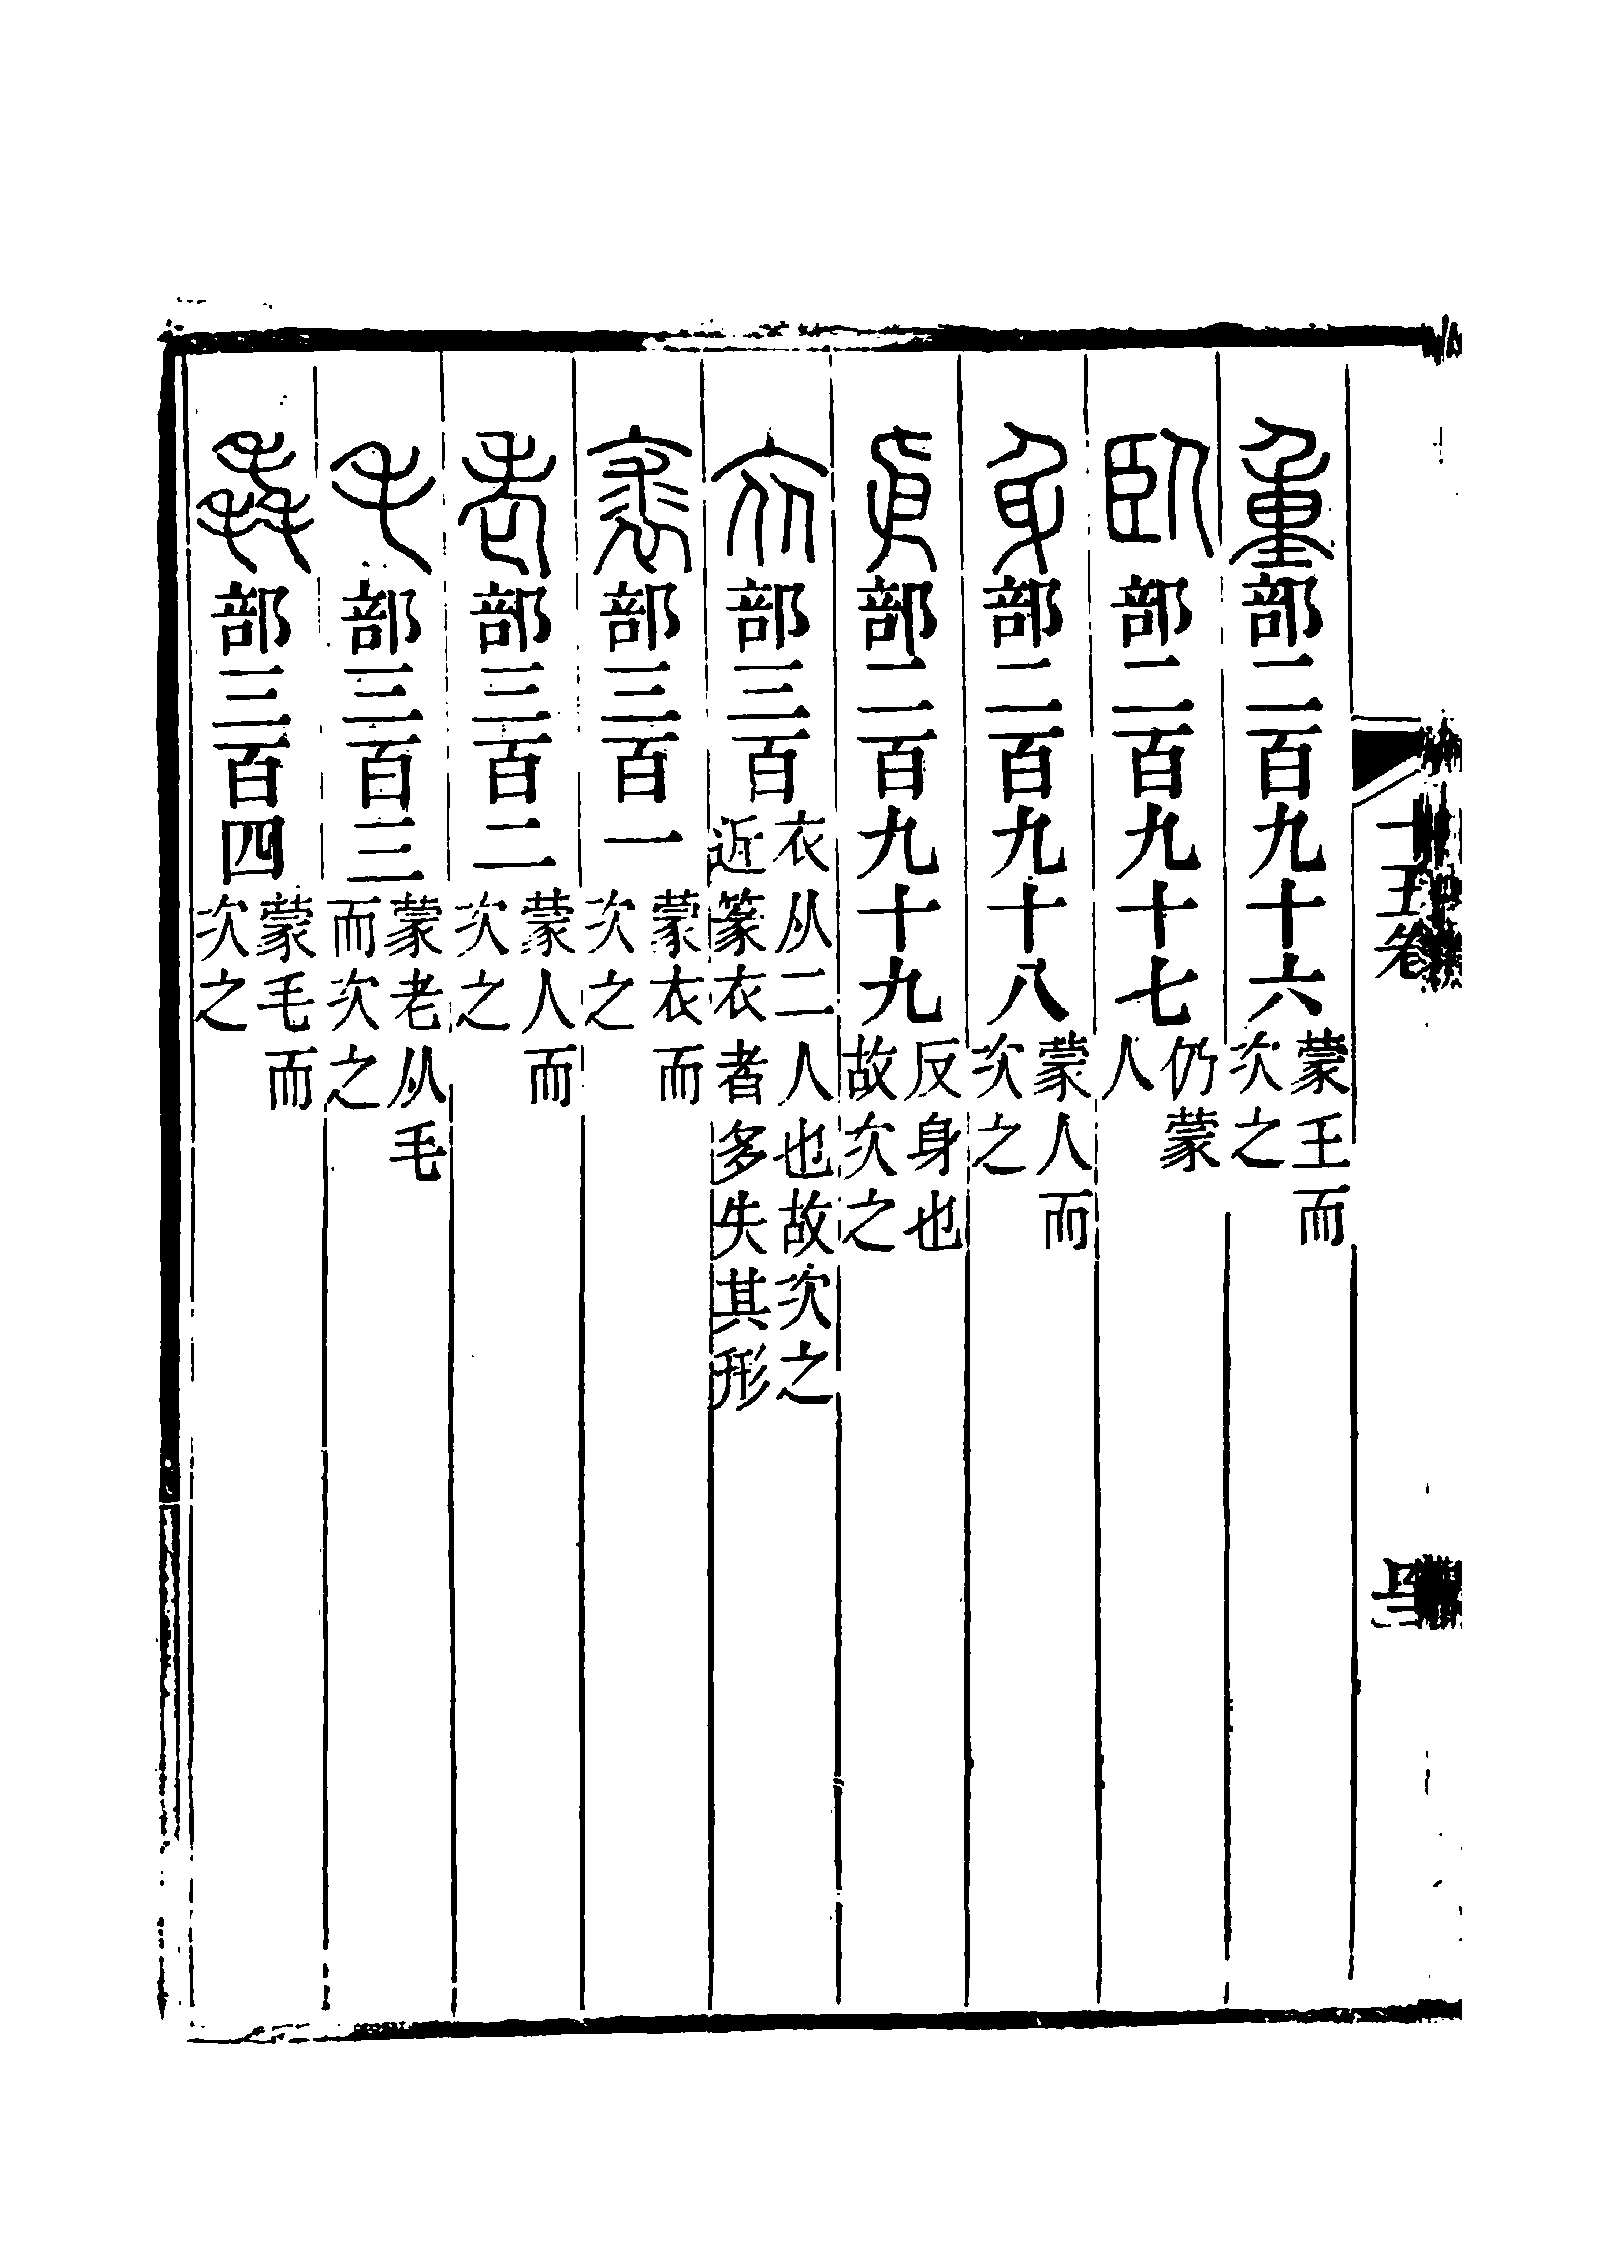 重部二百九十六蒙𡈼而次之
臥部二百九十七仍蒙人
身部二百九十八蒙人而次之
㐆部二百九十九反身也故次之
衣部三百衣从二人也故次之近篆衣者多失其形
裘部三百一蒙衣而次之
老部三百二蒙人而次之
毛部三百三蒙老从毛而次之
毳部三百四蒙毛而次之
十五卷